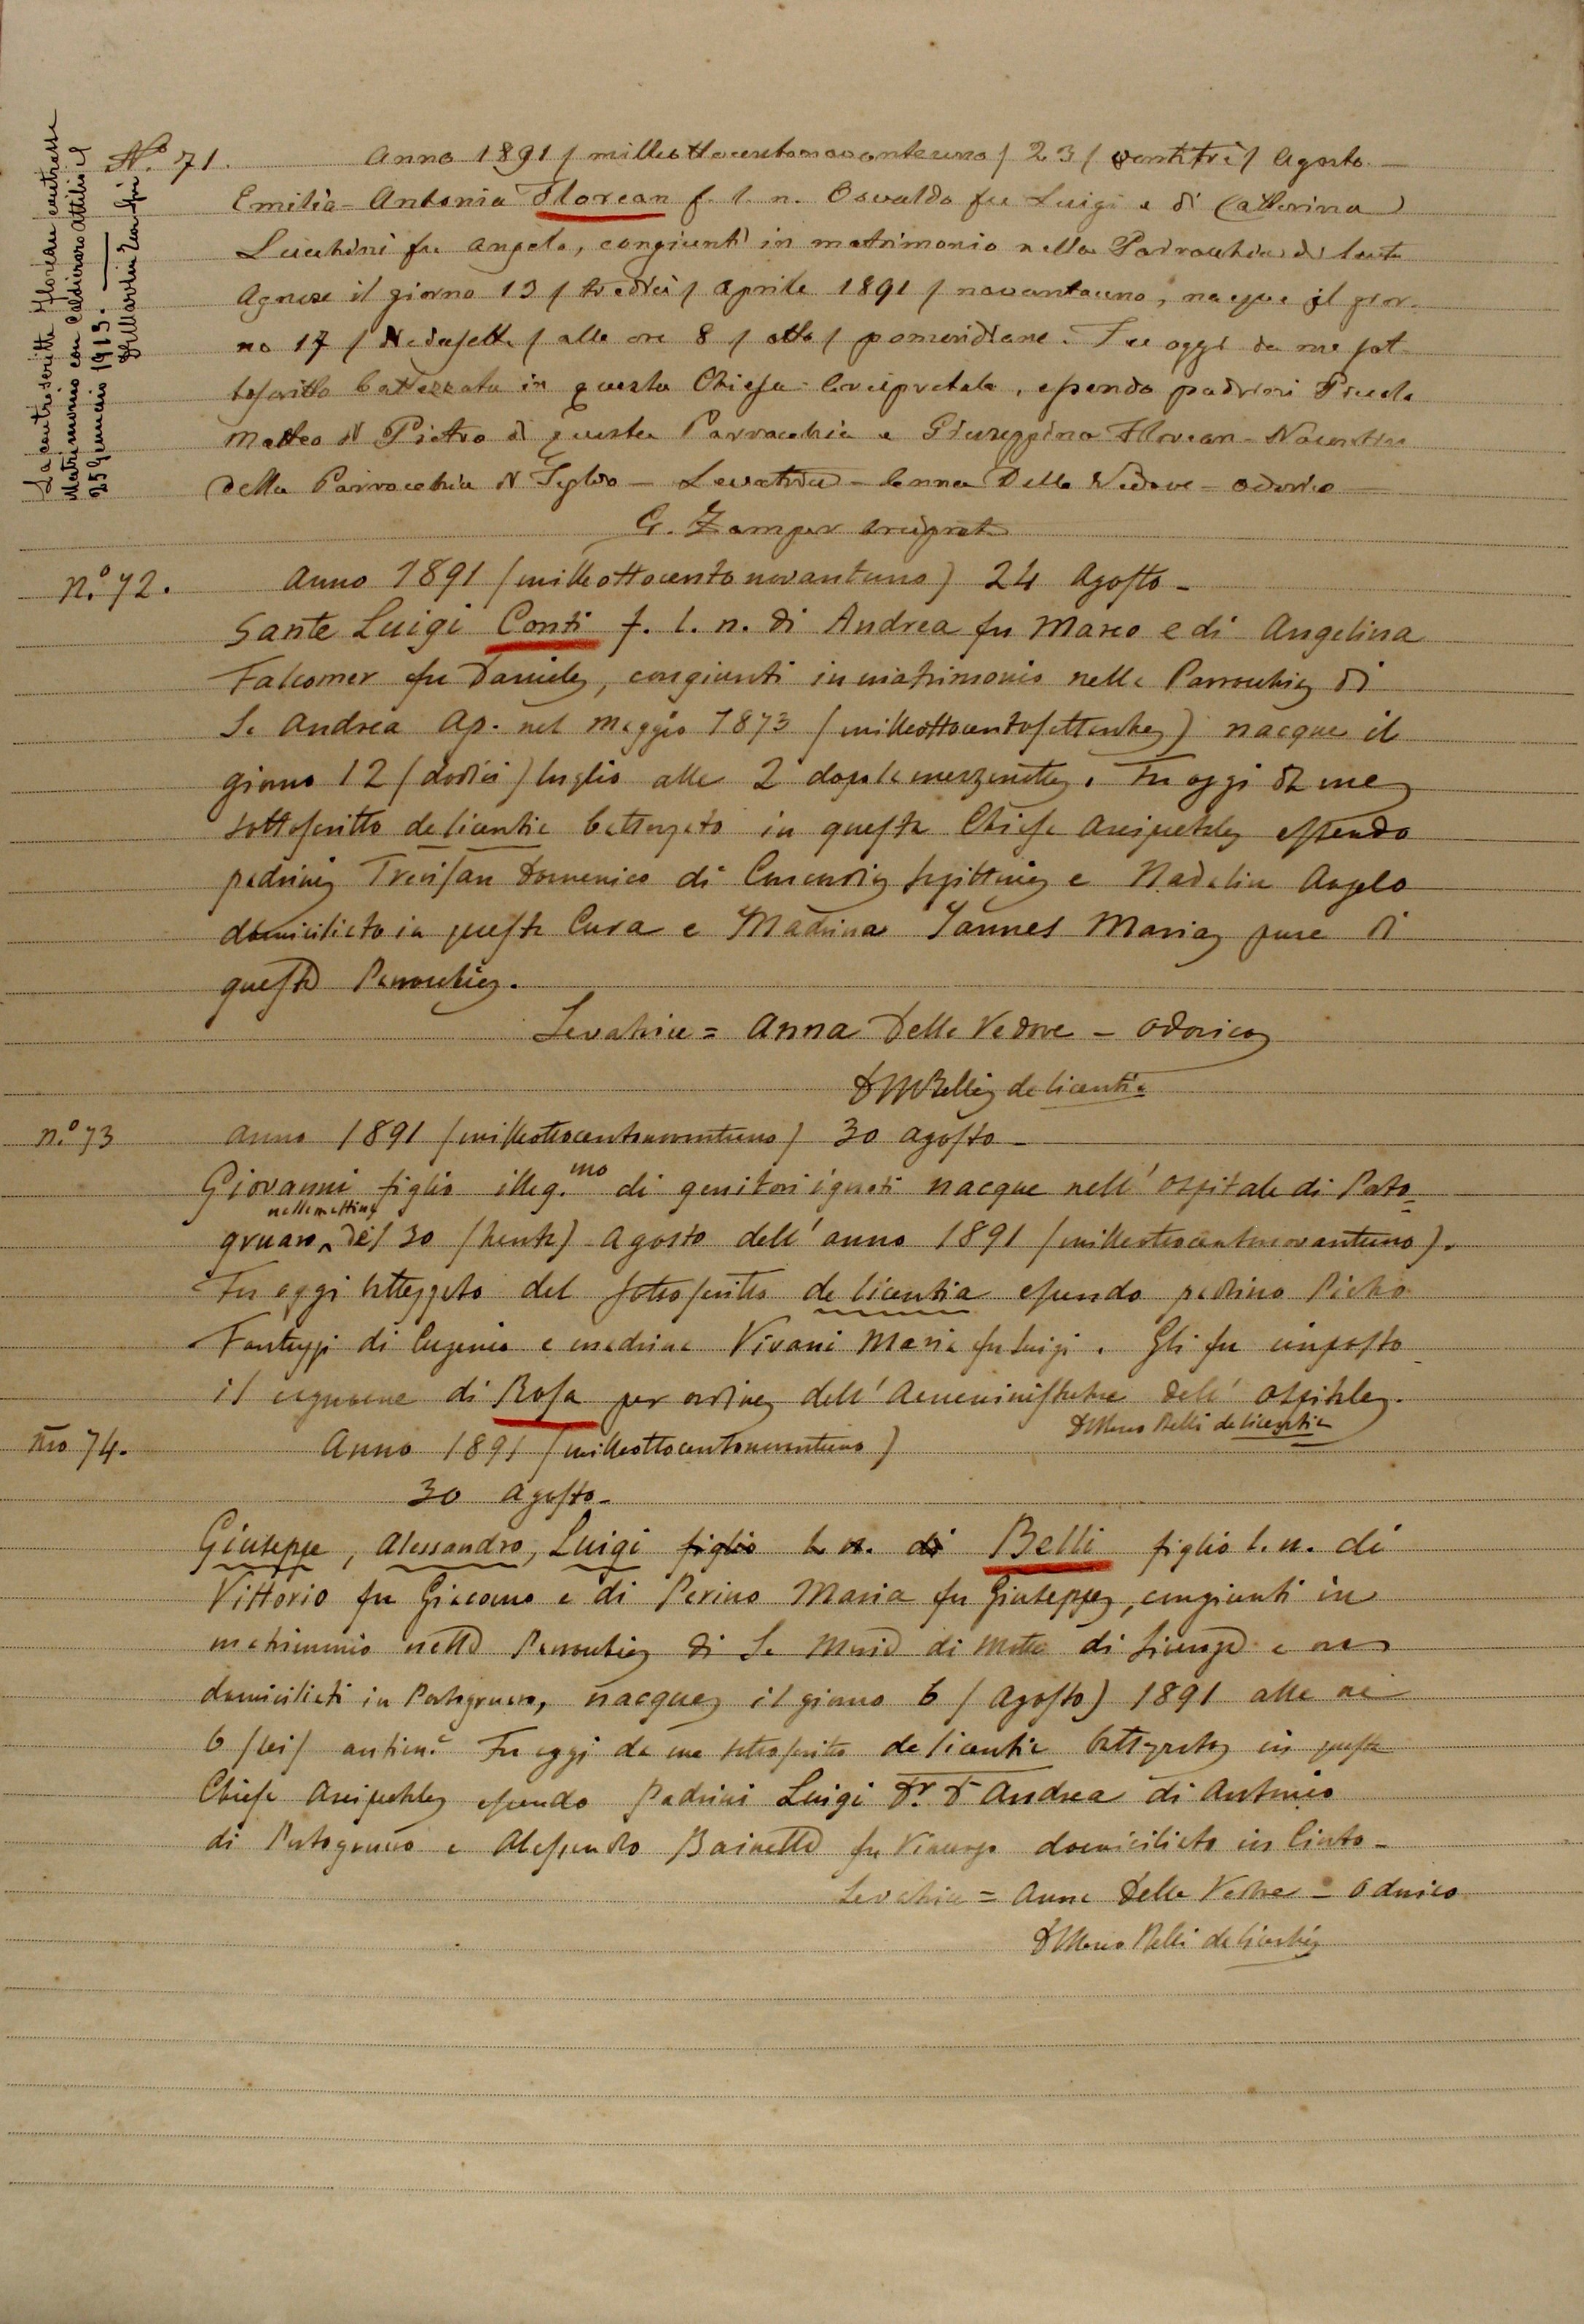 La controscritta Florean contrasse
Matrimonio con Caldieraro Attilio il
25 Gennaio 1913.
N.º 71. Anno 1891 / milleottocentonovantauno / 23 / ventitrè / Agosto —
Emilia - Antonia Florean f. l. n. Osvaldo fu Luigi e di Catterina
Lucchini fu Angelo, congiunti in matrimonio nella Parrocchia di Santa
Agnese il giorno 13 / tredici / Aprile 1891 / novantauno, nacque il gior-
no 17 / / alle ore 8 / otto / pomeridiane. Fu oggi da me sot-
toscritto battezzata in questa Chiesa Arcipretale, essendo padrini
Matteo di Pietro di questa Parrocchia e Giuseppina Florean -
della Parrocchia di Teglio — Levatrice — Anna Delle Vedove — Odorico
G. Zamper Arciprete
n.º 72. Anno 1891 (milleottocentonovantuno) 24 Agosto -
Sante Luigi Conti f. l. n. di Andrea fu Marco e di Angelina
Falcomer fu Daniele, congiunti in matrimonio nella Parrocchia di
S. Andrea Ap. nel Maggio 1873 (milleottocentosettantatre) nacque il
giorno 12 (dodici) luglio alle 2 dopo la mezzanotte. Fu oggi da me
sottoscritto de licentia battezzato in questa Chiesa Arcipretale essendo
padrini Trevisan Domenico di Concordia Sagittaria e Nadalin Angelo
domiciliato in questa Cura e Madrina Jannes Maria pure di
questa Parrocchia.
Levatrice = Anna Delle Vedove - Odorico
D M Belli de licentia
n.º 73 Anno 1891 (milleottocentonovantuno) 30 Agosto -
Giovanni figlio illeg.mo di genitori ignoti nacque nell' Ospitale di Porto=
gruaro nella mattina del 30 (trenta) Agosto dell' anno 1891 (milleottocentonovantuno).
Fu oggi battezzato dal sottoscritto de licentia essendo padrino Pietro
Fantuzzi di Eugenio e madrina Vivani Maria fu Luigi. Gli fu imposto
il cognome di Rosa per ordine dell' Amministratore dell' Ospitale.
D Marco Belli de licentia
Nro 74. Anno 1891 (milleottocentonovantuno)
30 Agosto -
Giuseppe, Alessandro, Luigi figlio l. n. di Belli figlio l. n. di
Vittorio fu Giacomo e di Perino Maria fu Giuseppe, congiunti in
matrimonio nella Parrocchia di S. Maria di Motta di Livenza e ora
domiciliati in Portogruaro, nacque il giorno 6 (Agosto) 1891 alle ore
6 (sei) antim.e Fu oggi da me sottoscritto de licentia battezzato in questa
Chiesa Arcipretale essendo Padrini Luigi Dr. D'Andrea di Antonio
di Portogruaro e Alessandro fu Vincenzo domiciliato in Cinto -
Levatrice = Anna Delle Vedove - Odorico
D Marco Belli de licentia